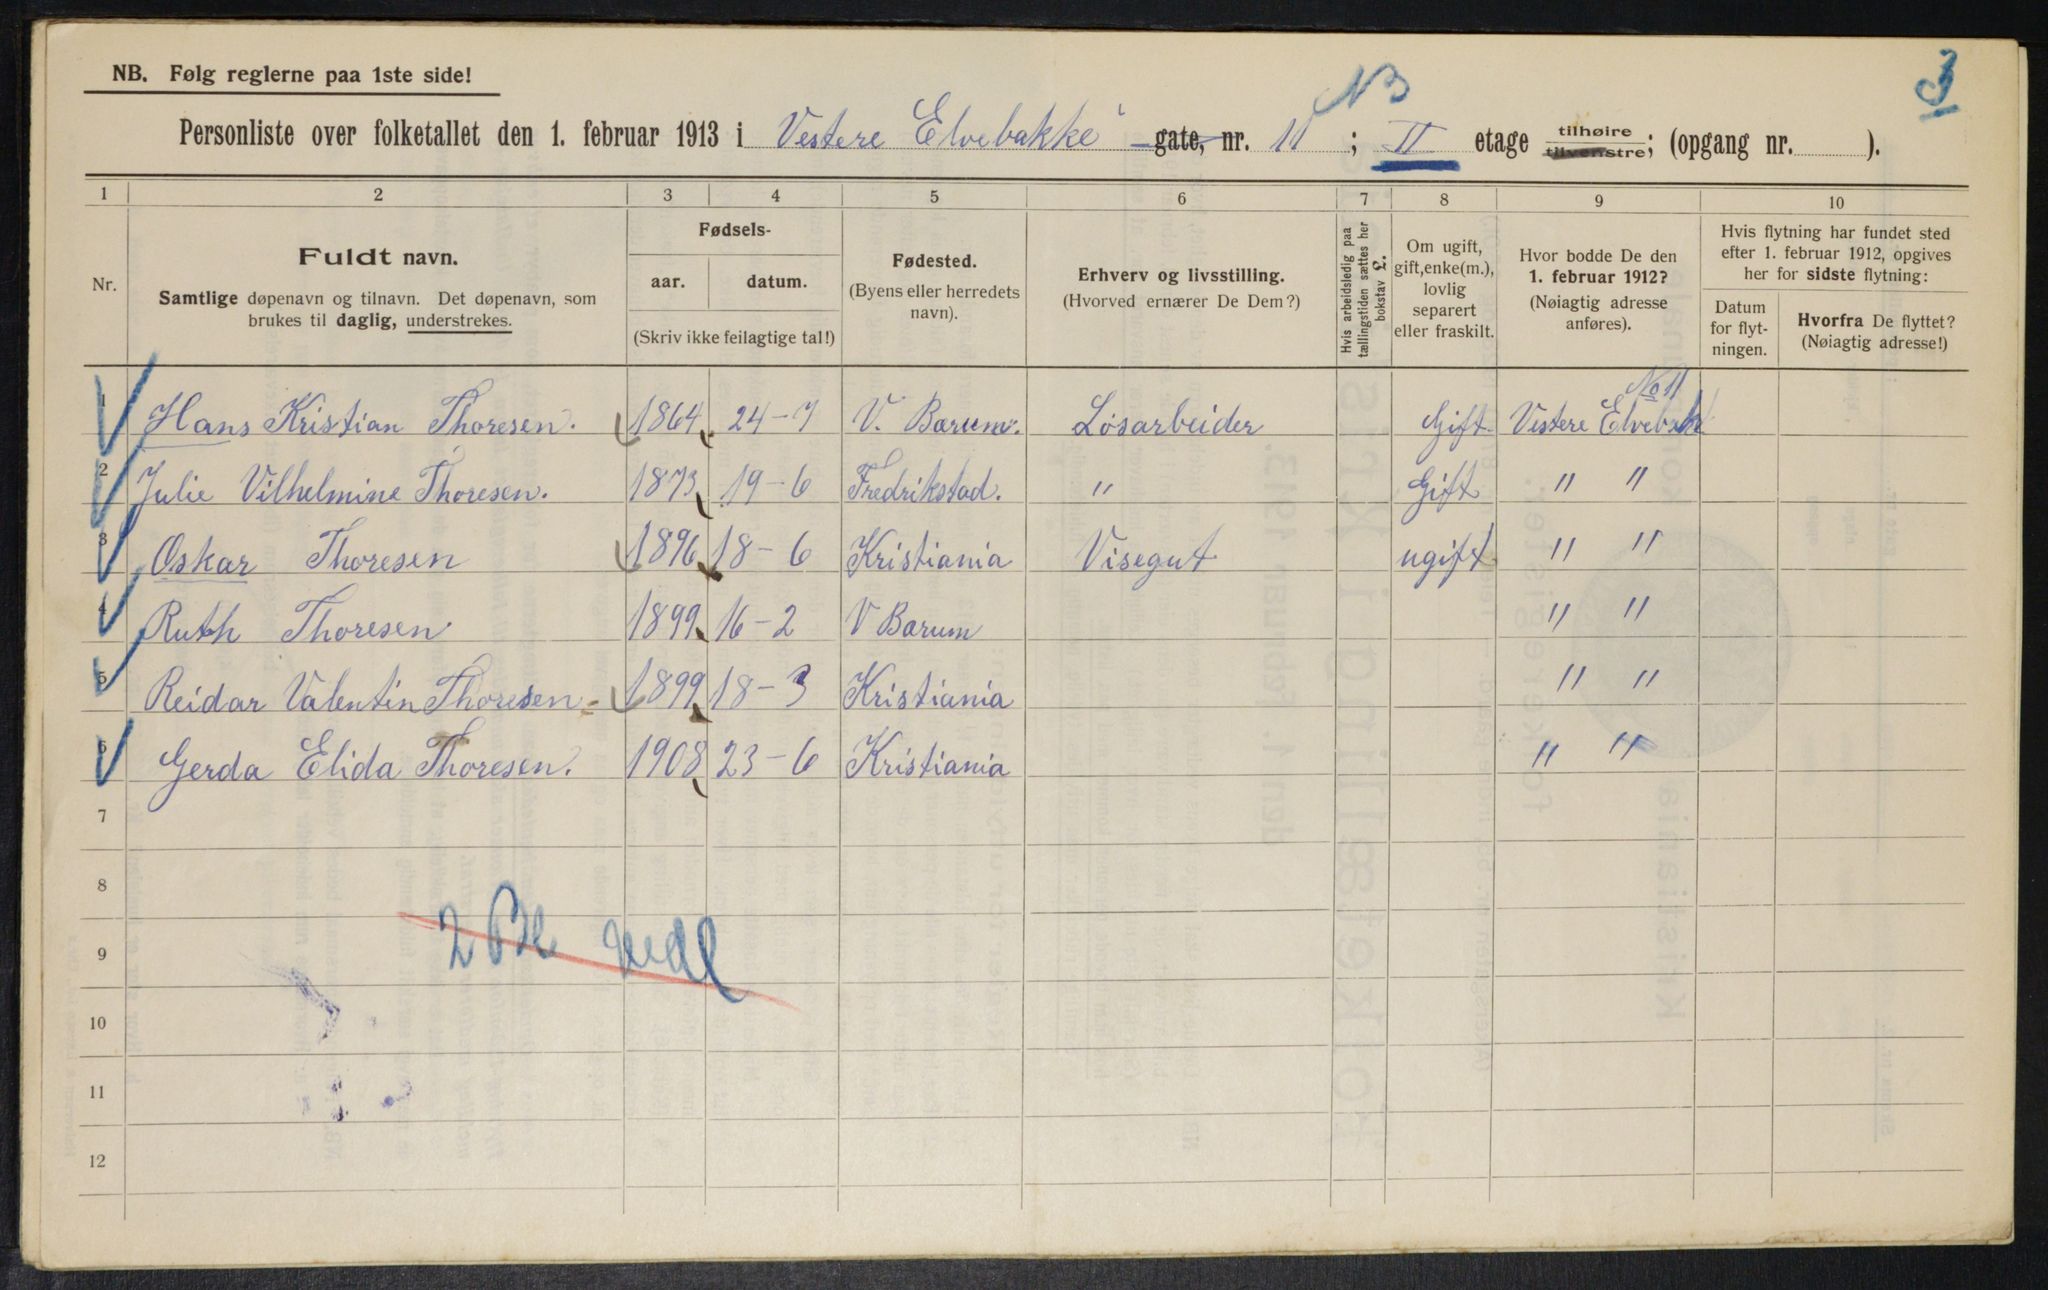 3
NB. Følg reglerne paa 1ste side!
NB
Personliste over folketallet den 1. februar 1913 i Vestere Elvebakke gate, nr. 11 ; II etage tilhøire tilvenstre; (opgang nr. ).
1 2 3 4 5 6 7 8 9 10
Nr.
Fuldt navn.
Samtlige døpenavn og tilnavn. Det døpenavn, som
brukes til daglig, understrekes.
Fødsels-
aar. datum.
(Skriv ikke feilagtige tal!)
Fødested.
(Byens eller herredets
navn).
Erhverv og livsstilling.
(Hvorved ernærer De Dem?)
Hvis arbeidsledig paa
tællingstiden sættes her
bokstav £.
Om ugift,
gift, enke(m.),
lovlig
separert
eller fraskilt.
Hvor bodde De den
1. februar 1912?
(Nøiagtig adresse
anføres).
Hvis flytning har fundet sted
efter 1. februar 1912, opgives
her for sidste flytning:
Datum
for flyt-
ningen.
Hvorfra De flyttet?
(Nøiagtig adresse!)
No 11
1 Hans Kristian Thoresen. 1864 24-7 V. Bærum. Løsarbeider Gift Vestere Elvebak
2 Julie Vilhelmine Thoresen. 1873 19-6 Fredrikstad. " Gift " "
3 Oskar Thoresen 1896 18-6 Kristiania Visegut ugift " "
4 Ruth Thoresen 1899 16-2 V Bærum " "
5 Reidar Valentin Thoresen 1899 18-3 Kristiania " "
6 Gerda Elida Thoresen. 1908 23-6 Kristiania " "
7
8
9
2 Bl vedl
10
11
12